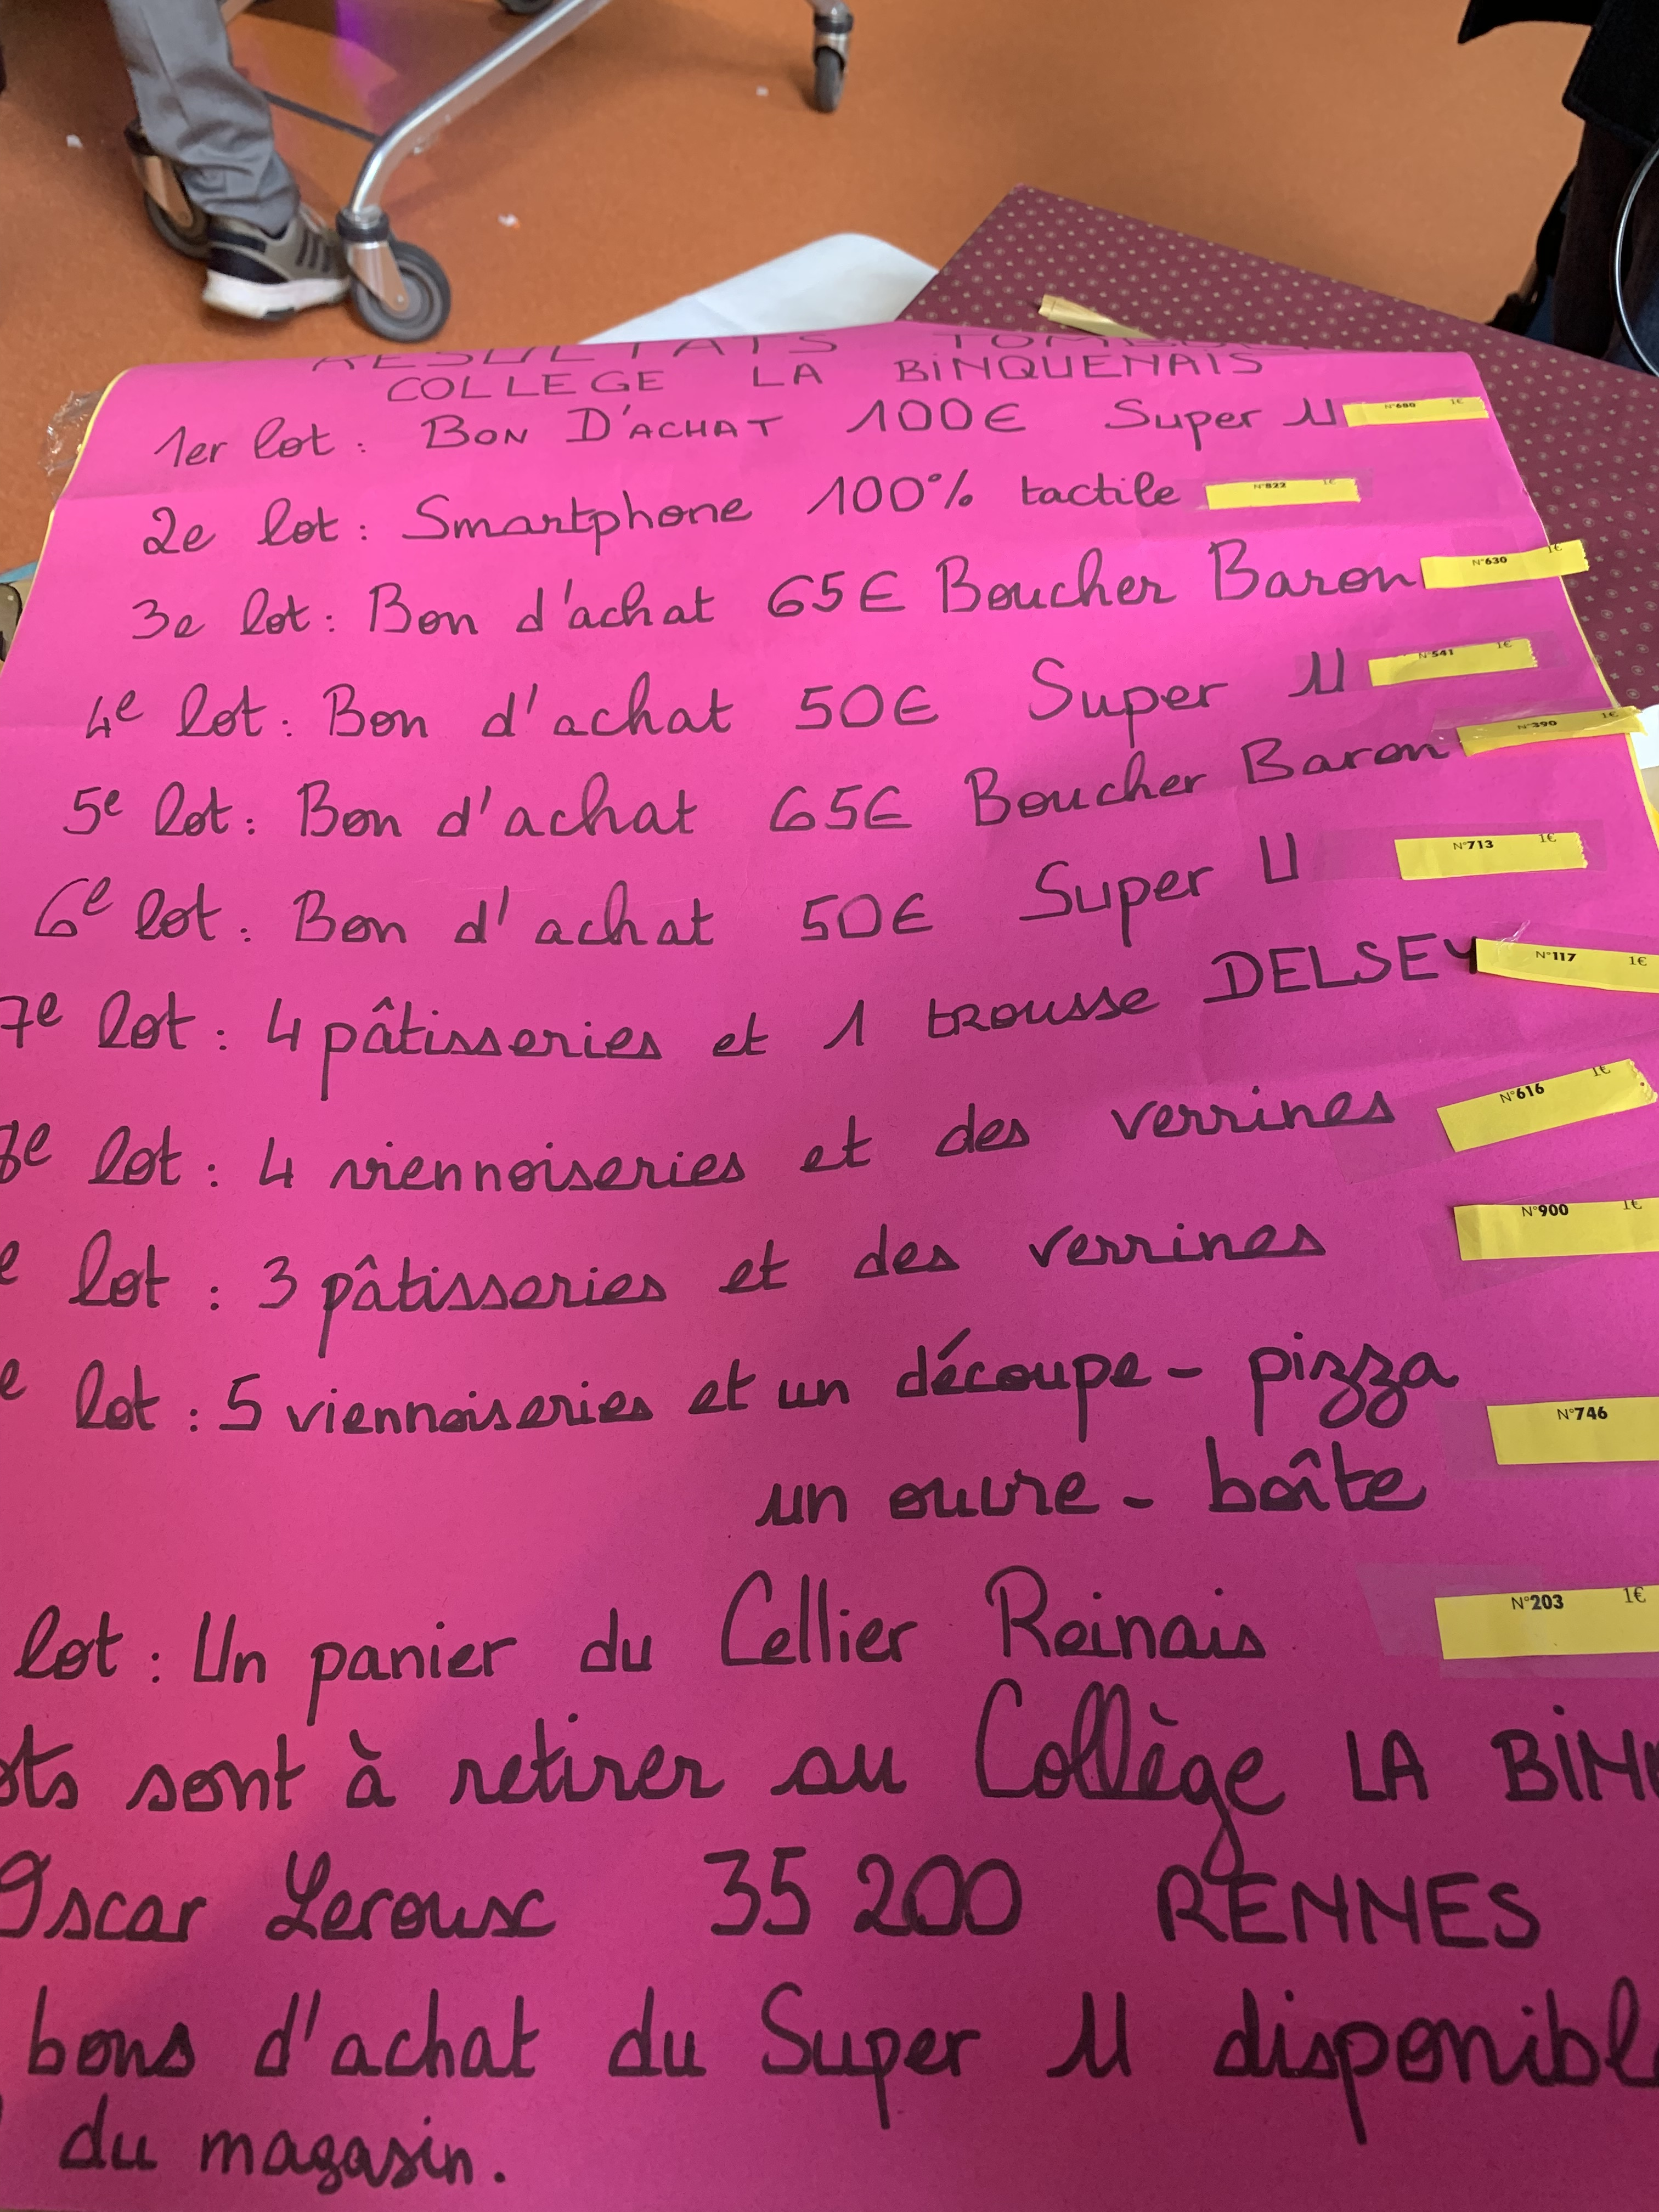 RESULTATS
COLLEGE LA BINQUENAIS
1er lot : BON D'ACHAT 100€ Super U N°680 1€
2e lot : Smartphone 100% tactile N°822 1€
3e lot : Bon d'achat 65€ Boucher Baron N°630 1€
4e lot : Bon d'achat 50€ Super U N°541 1€
5e lot : Bon d'achat 65€ Boucher Baron N°390 1€
6e lot : Bon d'achat 50€ Super U N°713 1€
7e lot : 4 pâtisseries et 1 trousse DELSEY N°117 1€
8e lot : 4 viennoiseries et des verrines N°616 1€
e lot : 3 pâtisseries et des verrines N°900 1€
e lot : 5 viennoiseries et un découpe-pizza N°746
un ouvre-boîte
lot : Un panier du Cellier Reinais N°203 1€
ots sont à retirer au Collège LA BIN
Oscar Leroux 35 200 RENNES
bons d'achat du Super U disponibl
du magasin.